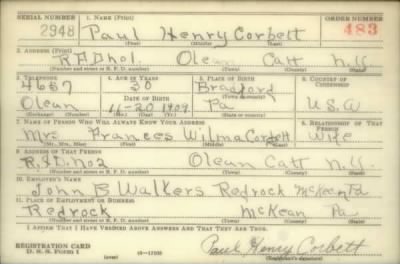 SERIAL NUMBER 1. NAME (Print) ORDER NUMBER
2948 Paul Henry Corbett 483
(First) (Middle) (Last)
2. ADDRESS (Print)
Olean Catt N.Y.
(Number and street or R. F. D. number) (Town) (County) (State)
3. TELEPHONE 4. AGE IN YEARS 5. PLACE OF BIRTH 6. COUNTRY OF CITIZENSHIP
4657 30 Bradford
DATE OF BIRTH
Olean 11-20-1909 Pa U.S.A
(Exchange) (Number) (Mo.) (Day) (Yr.) (Town) (County) (State)
7. NAME OF PERSON WHO WILL ALWAYS KNOW YOUR ADDRESS 8. RELATIONSHIP OF THAT PERSON
Mrs. Frances Wilma Corbett Wife
(Mr., Mrs., Miss) (First) (Middle) (Last)
9. ADDRESS OF THAT PERSON
R.F.D. No2 Olean Catt N.Y.
(Number and street or R. F. D. number) (Town) (County) (State)
10. EMPLOYER'S NAME
John B Walkers Redrock McKean Pa
11. PLACE OF EMPLOYMENT OR BUSINESS
Redrock McKean Pa
(Number and street or R. F. D. number) (Town) (County) (State)
I AFFIRM THAT I HAVE VERIFIED ABOVE ANSWERS AND THAT THEY ARE TRUE.
REGISTRATION CARD
D. S. S. FORM 1 Paul Henry Corbett
(Registrant's signature)